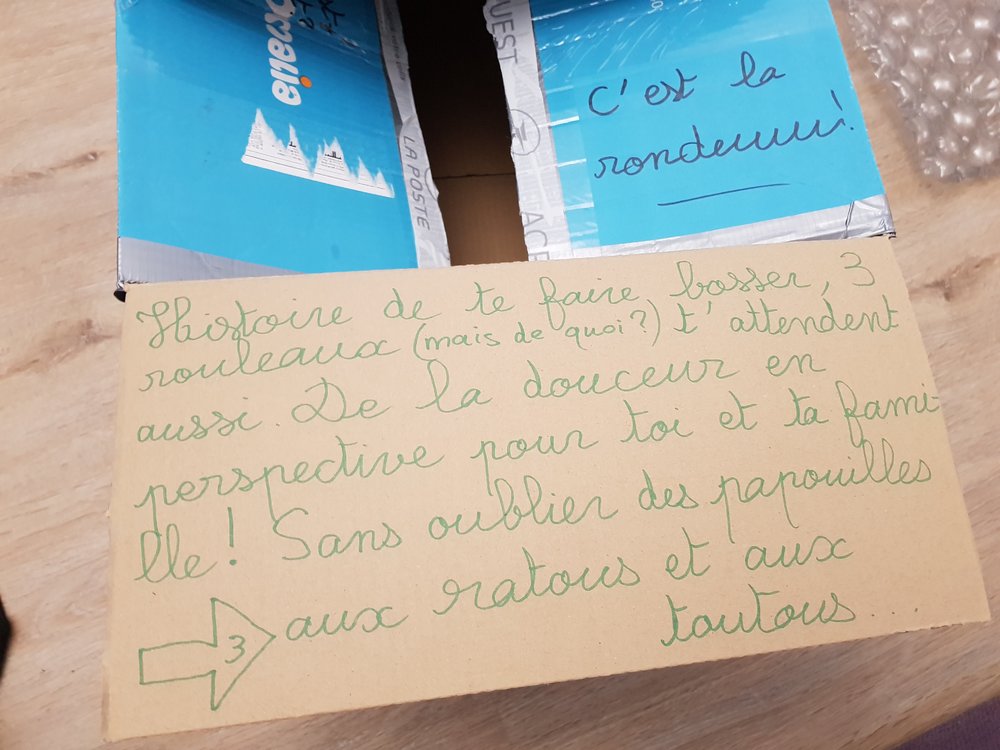 C'est la
rondeuuur!
LA POSTE
Histoire de te faire bosser, 3
rouleaux (mais de quoi?) t'attendent
aussi. De la douceur en
perspective pour toi et ta fami-
lle! Sans oublier des papouilles
3
aux ratous et aux
toutous...